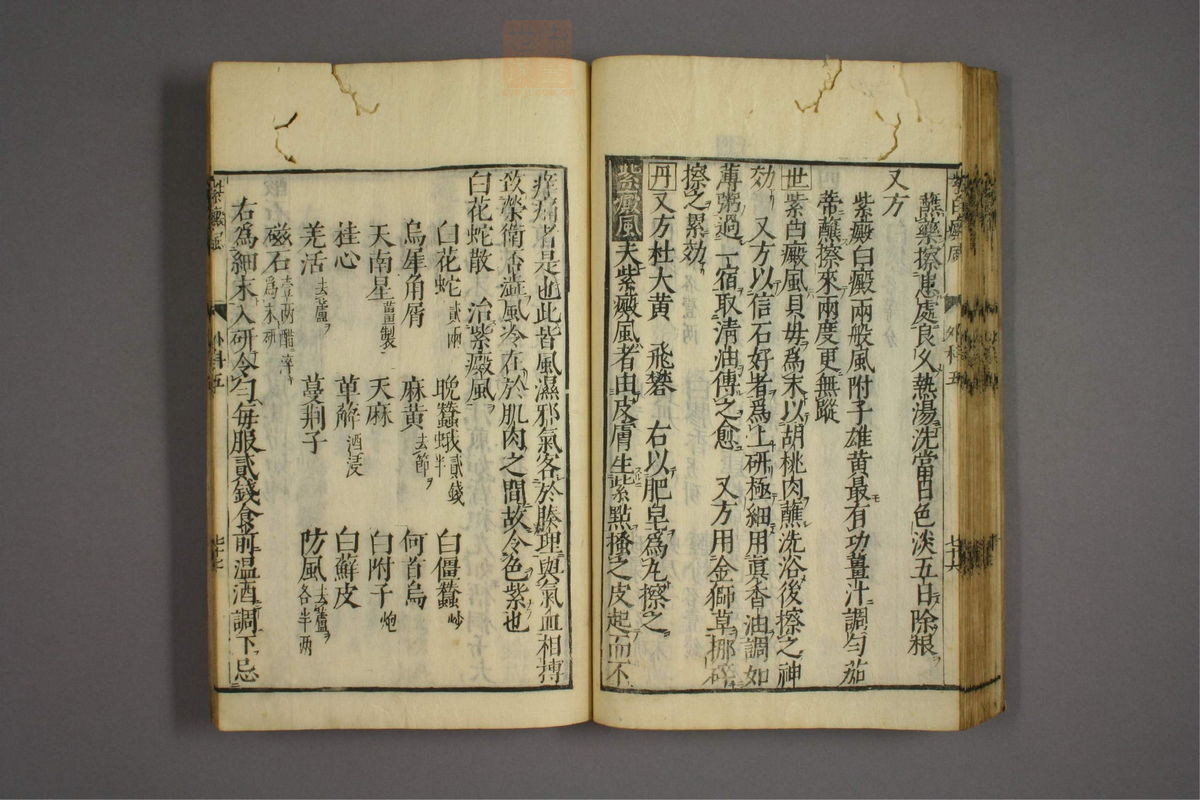 紫白癜風
外科五
七十六
蘸藥擦患處良久熱湯洗當日色淡五日除根
又方
紫癜白癜兩般風附子雄黃最有功薑汁調勻茄
蒂蘸擦來兩度更無蹤
世紫白癜風貝母爲末以胡桃肉蘸洗浴後擦之神
効 又方以信石好者爲上研極細用眞香油調如
薄粥過一宿取淸油傳之愈 又方用金獅草挪碎
擦之累効
丹又方杜大黃 飛礬 右以肥皂爲丸擦之
紫癜風 夫紫癜風者由皮膚生紫點搔之皮起而不
痒痛者是也此皆風濕邪氣客於腠理與氣血相摶
致榮衛否澁風冷在於肌肉之間故令色紫也
白花蛇散 治紫癜風
白花蛇貳兩 晚蠶蛾貳錢半 白僵蠶炒
烏犀角屑 麻黃去節 何首烏
天南星薑製 天麻 白附子炮
桂心 萆薢酒浸 白蘚皮
羗活去蘆 蔓荊子 防風去蘆各半兩
磁石壹兩醋淬爲末研
右爲細末入研令勻每服貳錢食前溫酒調下忌
紫癜風
外科五
七十七